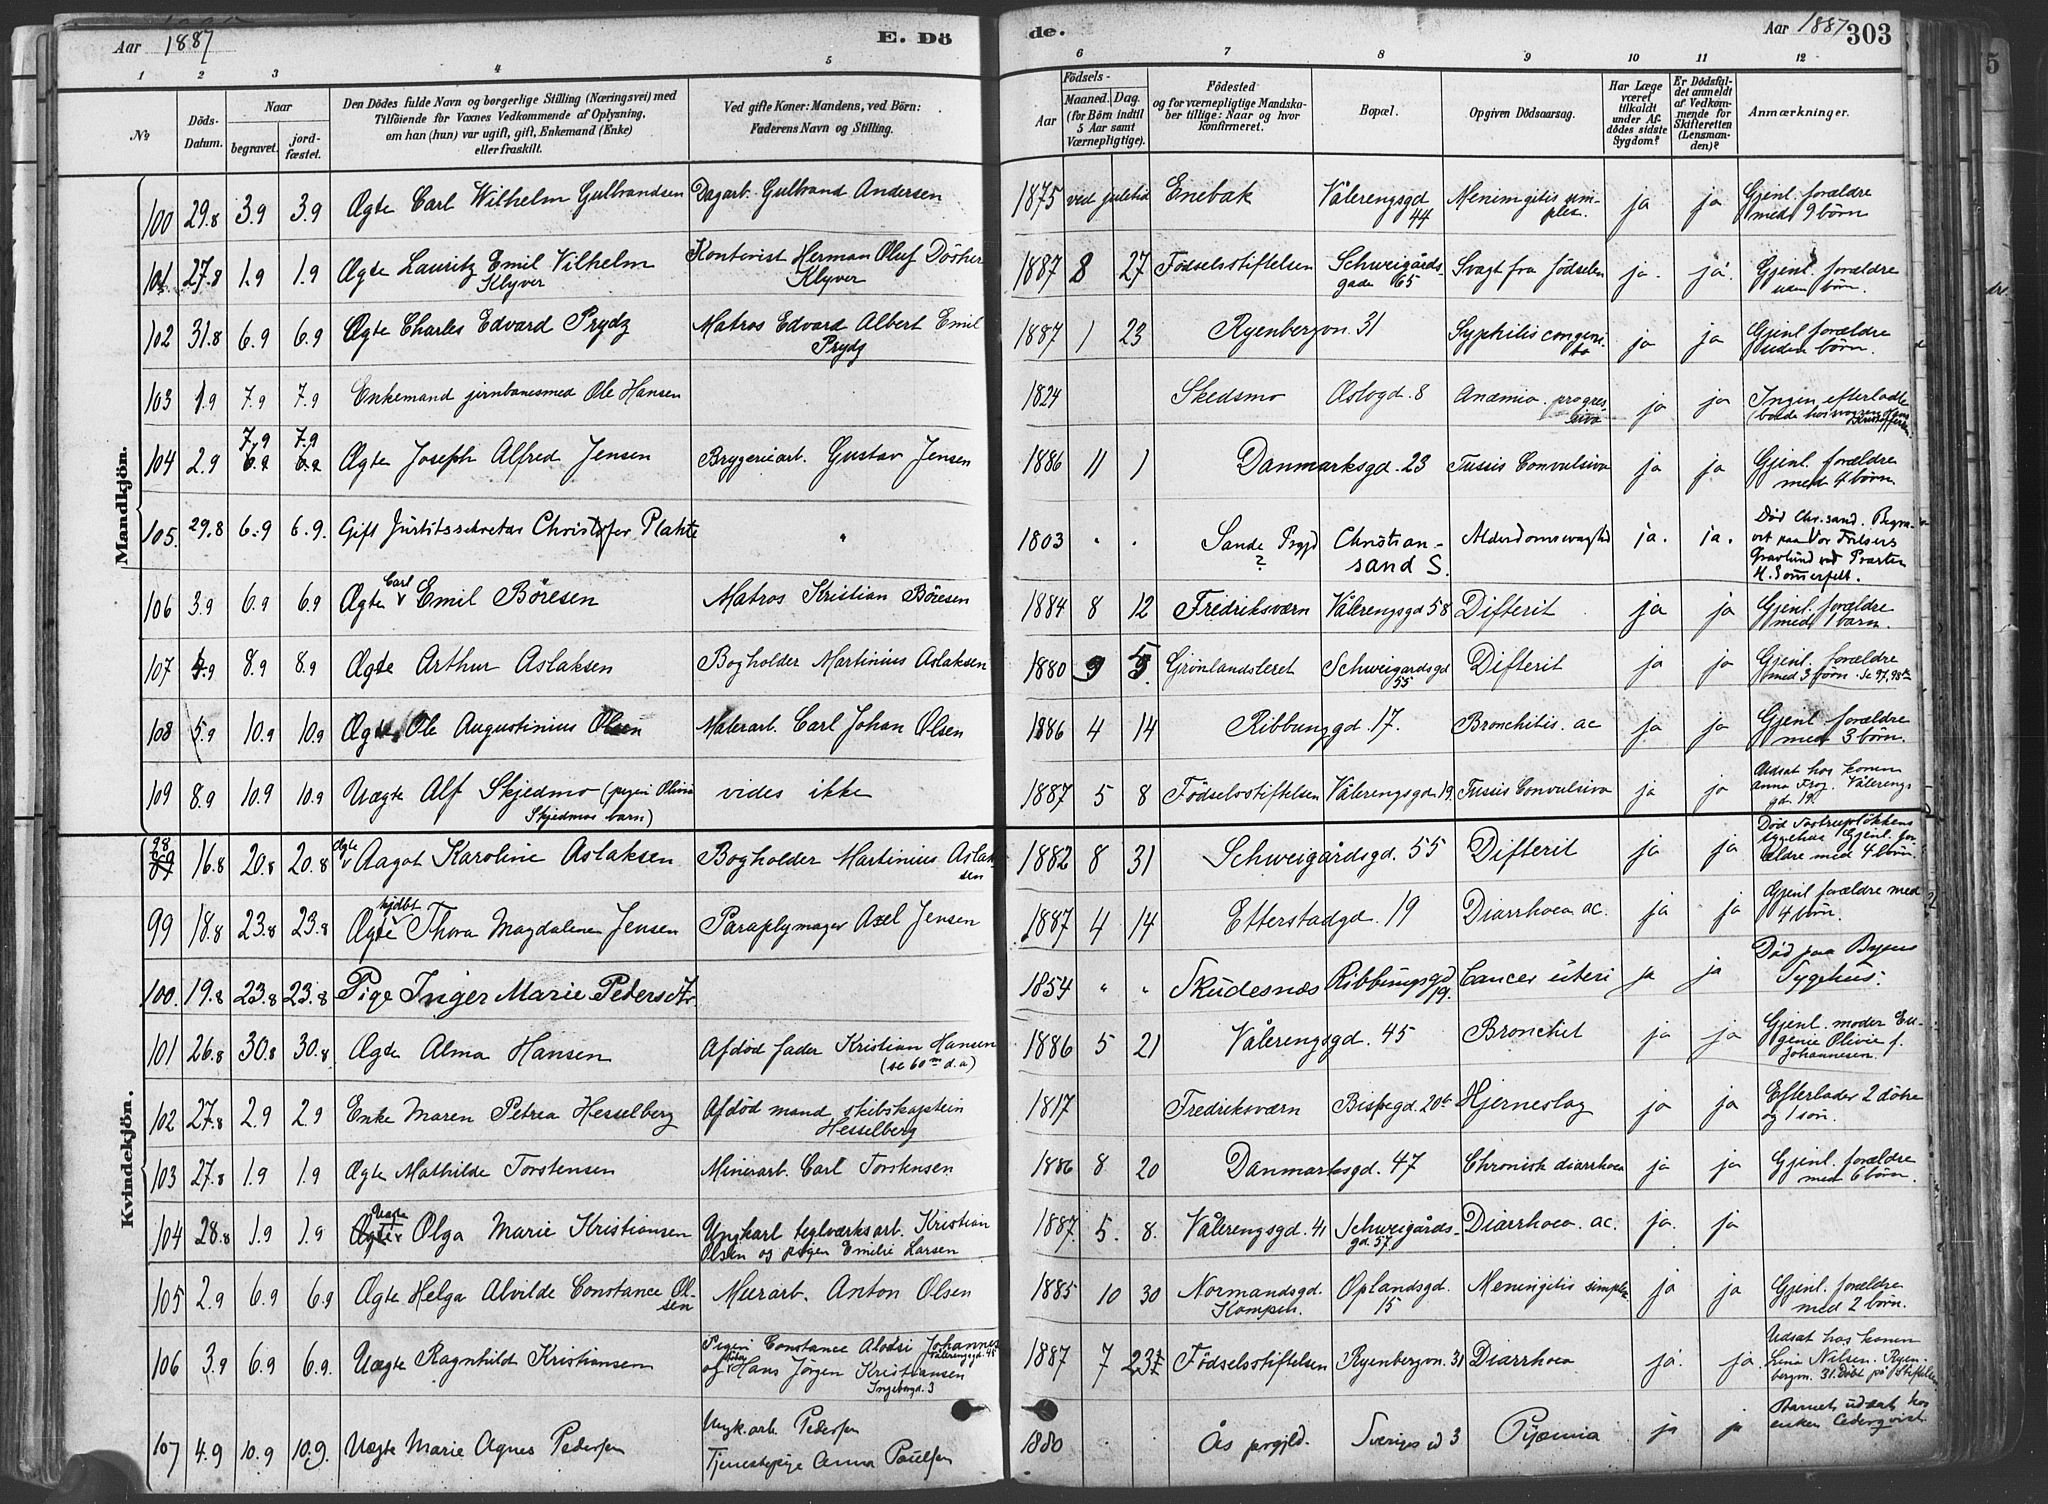 Aar 1887
E. Dö
de.
Aar 1887 303
1 2 3 4 5 6 7 8 9 10 11 12
No
Döds-Datum.
Naar
begravet.
jord-fæstet.
Den Dödes fulde Navn og borgerlige Stilling (Næringsvei) med
Tilföiende for Voxnes Vedkommende af Oplysning,
om han (hun) var ugift, gift, Enkemand (Enke)
eller fraskilt.
Ved gifte Koner: Mandens, ved Börn:
Faderens Navn og Stilling.
Födsels-
Aar
Maaned. Dag.
(for Börn indtil
5 Aar samt
Værnepligtige).
Födested
og for værnepligtige Mandska-
ber tillige: Naar og hvor
konfirmeret.
Bopæl.
Opgiven Dödsaarsag.
Har Læge
været
tilkaldt
under Af-
dödes sidste
Sygdom?
Er Dödsfal-
det anmeldt
af Vedkom-
mende for
Skifteretten
(Lensman-
den)?
Anmærkninger.
Mandkjön.
100 29.8 3.9 3.9 Ægte Carl Wilhelm Gulbrandsen Dagarb. Gulbrand Andersen 1875 ved juletid Enebak Vålerengsgd 44 Meningitis simplex. ja ja Gjenl. forældre med 9 börn
101 27.8 1.9 1.9 Ægte Lauritz Emil Vilhelm Klyver Kontorist Herman Oluf Klyver 1887 8 27 Födselsstiftelsen Schweigårdsgade 65 Svagt fra födselen ja. ja. Gjenl. forældre uden börn.
102 31.8 6.9 6.9 Ægte Charles Edvard Prydz Matros Edvard Albert Emil Prydz 1887 1 23 Ryenbergvn. 31 Syphilis congenita ja ja Gjenl. forældre uden börn.
103 1.9 7.9 7.9 Enkemand jernbanesmed Ole Hansen 1824 Skedsmo Oslogd. 8 Anæmia progressiva ja ja Ingen efterladte
104 2.9 7.9 6.9 7.9 6.9 Ægte Joseph Alfred Jensen Bryggeriarb. Gustav Jensen 1886 11 1 Danmarksgd. 23 Tussis Convulsiva ja ja Gjenl. forældre med 4 börn
105. 29.8 6.9 6.9. Gift Justitssekretær Christofer Plahte " 1803 " " Sande Prgjd ? Christiansand S. Alderdomssvaghed ja. ja. Död Chr.sand. Begravet paa Vor Frelsers Gravlund ved Præsten H. Sommerfelt.
106 3.9 6.9 6.9 Ægte Carl Emil Böresen Matros Kristian Böresen 1884 8 12 Fredriksværn Vålerengsgd 58 Difterit ja ja Gjenl. forældre med 1 barn.
107 4.9 8.9 8.9 Ægte Arthur Aslaksen Bogholder Martinius Aslaksen 1880 9 5 Grönlandsleret Schweigårdsgd 55 Difterit ja ja Gjenl. forældre med 3 börn. Se 97, 98
108 5.9 10.9 10.9 Ægte Ole Augustinius Olsen Malerarb. Carl Johan Olsen 1886 4 14 Ribbunggd. 17. Bronchitis. ac ja ja Gjenl. forældre med 3 börn.
109 8.9 10.9 10.9 Uægte Alf Skjedmo (pigen Olivia Skjedmos barn) vides ikke 1887 5 8 Födselsstiftelsen Vålerengsgd. 19. Tussis Convulsiva ja ja Udsat hos konen Anna Vålerengsgd. 19.
Kvindekjön.
98 16.8 20.8 20.8 Ægte Aagot Karoline Aslaksen Bogholder Martinius Aslaksen 1882 8 31 Schweigårdsgd. 55 Difterit ja ja Död sygehus Gjenl. forældre med 4 börn.
99 18.8 23.8 23.8 hjdbt Ægte Thora Magdalena Jensen Paraplymager Axel Jensen 1887 4 14 Etterstadgd. 19 Diarrhoea ac. ja ja Gjenl. forældre med 4 börn.
100. 19.8 23.8 23.8 Pige Inger Marie Pedersdtr 1854 " " Skudesnæs Ribbungsgd 19. Cancer uteri ja ja Död paa Byens Sygehus.
101 26.8 30.8 30.8 Ægte Alma Hansen Afdöd fader Kristian Hansen (se 60 m d.a) 1886 5 21 Vålerengsgd. 45 Bronchit ja ja Gjenl. moder Eugenie Olivie f. Johannesen.
102 27.8 2.9 2.9 Enke Maren Petrea Hesselberg Afdöd mand skibskaptein Hesselberg 1817 Fredriksværn Bispegd. 20b Hjerneslag ja ja Efterlader 2 dötre og 1 sön.
103 27.8 1.9 1.9 Ægte Mathilde Torstensen Minerarb. Carl Torstensen 1886 8 20 Danmarksgd. 47 Chronisk diarrhoea ja ja Gjenl. forældre med 6 börn.
104 28.8 1.9 1.9 Uægte Olga Marie Kristiansen Ungkarl teglværksarb. Kristian Olsen og pigen Emilie Larsen 1887. 5. 8. Vålerengsgd. 41 Schweigårdsgd. 57 Diarrhoea. ac. ja. ja
105 2.9 6.9 6.9 Ægte Helga Alvilde Constance Olsen Murarb. Anton Olsen 1885 10 30 Normandsgd. Kampen. Oplandsgd. 15 Meningitis simplex ja ja Gjenl. forældre med 2 börn.
106 3.9 6.9 6.9. Uægte Ragnhild Kristiansen Pigen Constance Johannes Vålerengsgd. 45 og Hans Jörgen Kristiansen Ingebgd. 3 1887 7 23 Födselsstiftelsen Ryenbergvn. 31 Diarrhoea ja. ja. Udsat hos konen Lina Nilsen. Ryenbergvn. 31. Döbt på Stiftelsen
107 4.9 10.9 10.9. Uægte Marie Agnes Pedersen Ungk. arb. Pedersen Tjenestepige Anna Paulsen 1880 Ås prgjld. Sveriges gd 3 Pyæmia ja ja Barnet udsat hos enken Cederqvist.